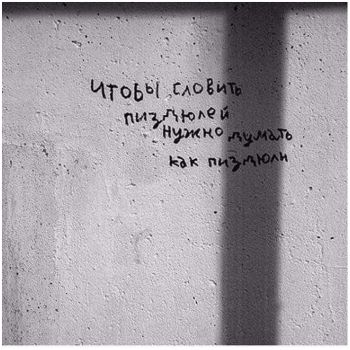 чтобы словить
пиздюлей
нужно думать
как пиздюли